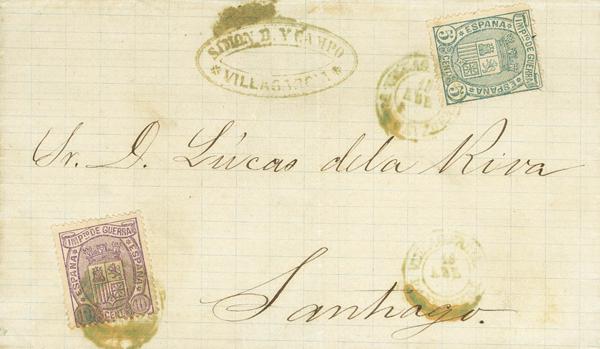 SIMON D. Y CAMPO
* VILLAGARCIA *
ESPAÑA
IMPTO DE GUERRA
ESPAÑA
5 CENTS 5
18
ABR
Sr. D. Lúcas de la Riva
IMPTO DE GUERRA
ESPAÑA
ESPAÑA
10 CENT 10
18
ABR
Santiago.